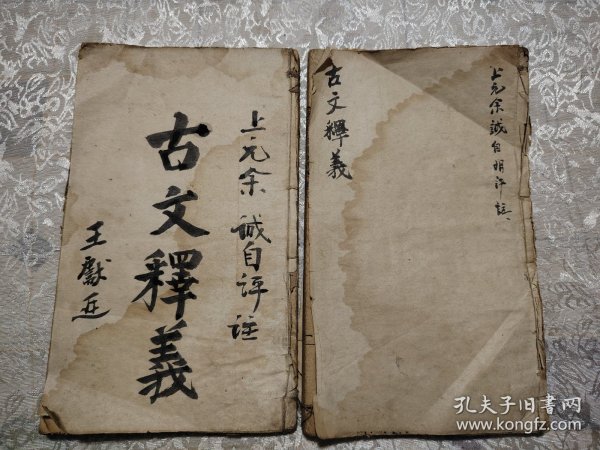 上元余 誠自評註
古文釋義
王獻廷
上元余誠自明評註
古文釋義
孔夫子旧书网
www.kongfz.com